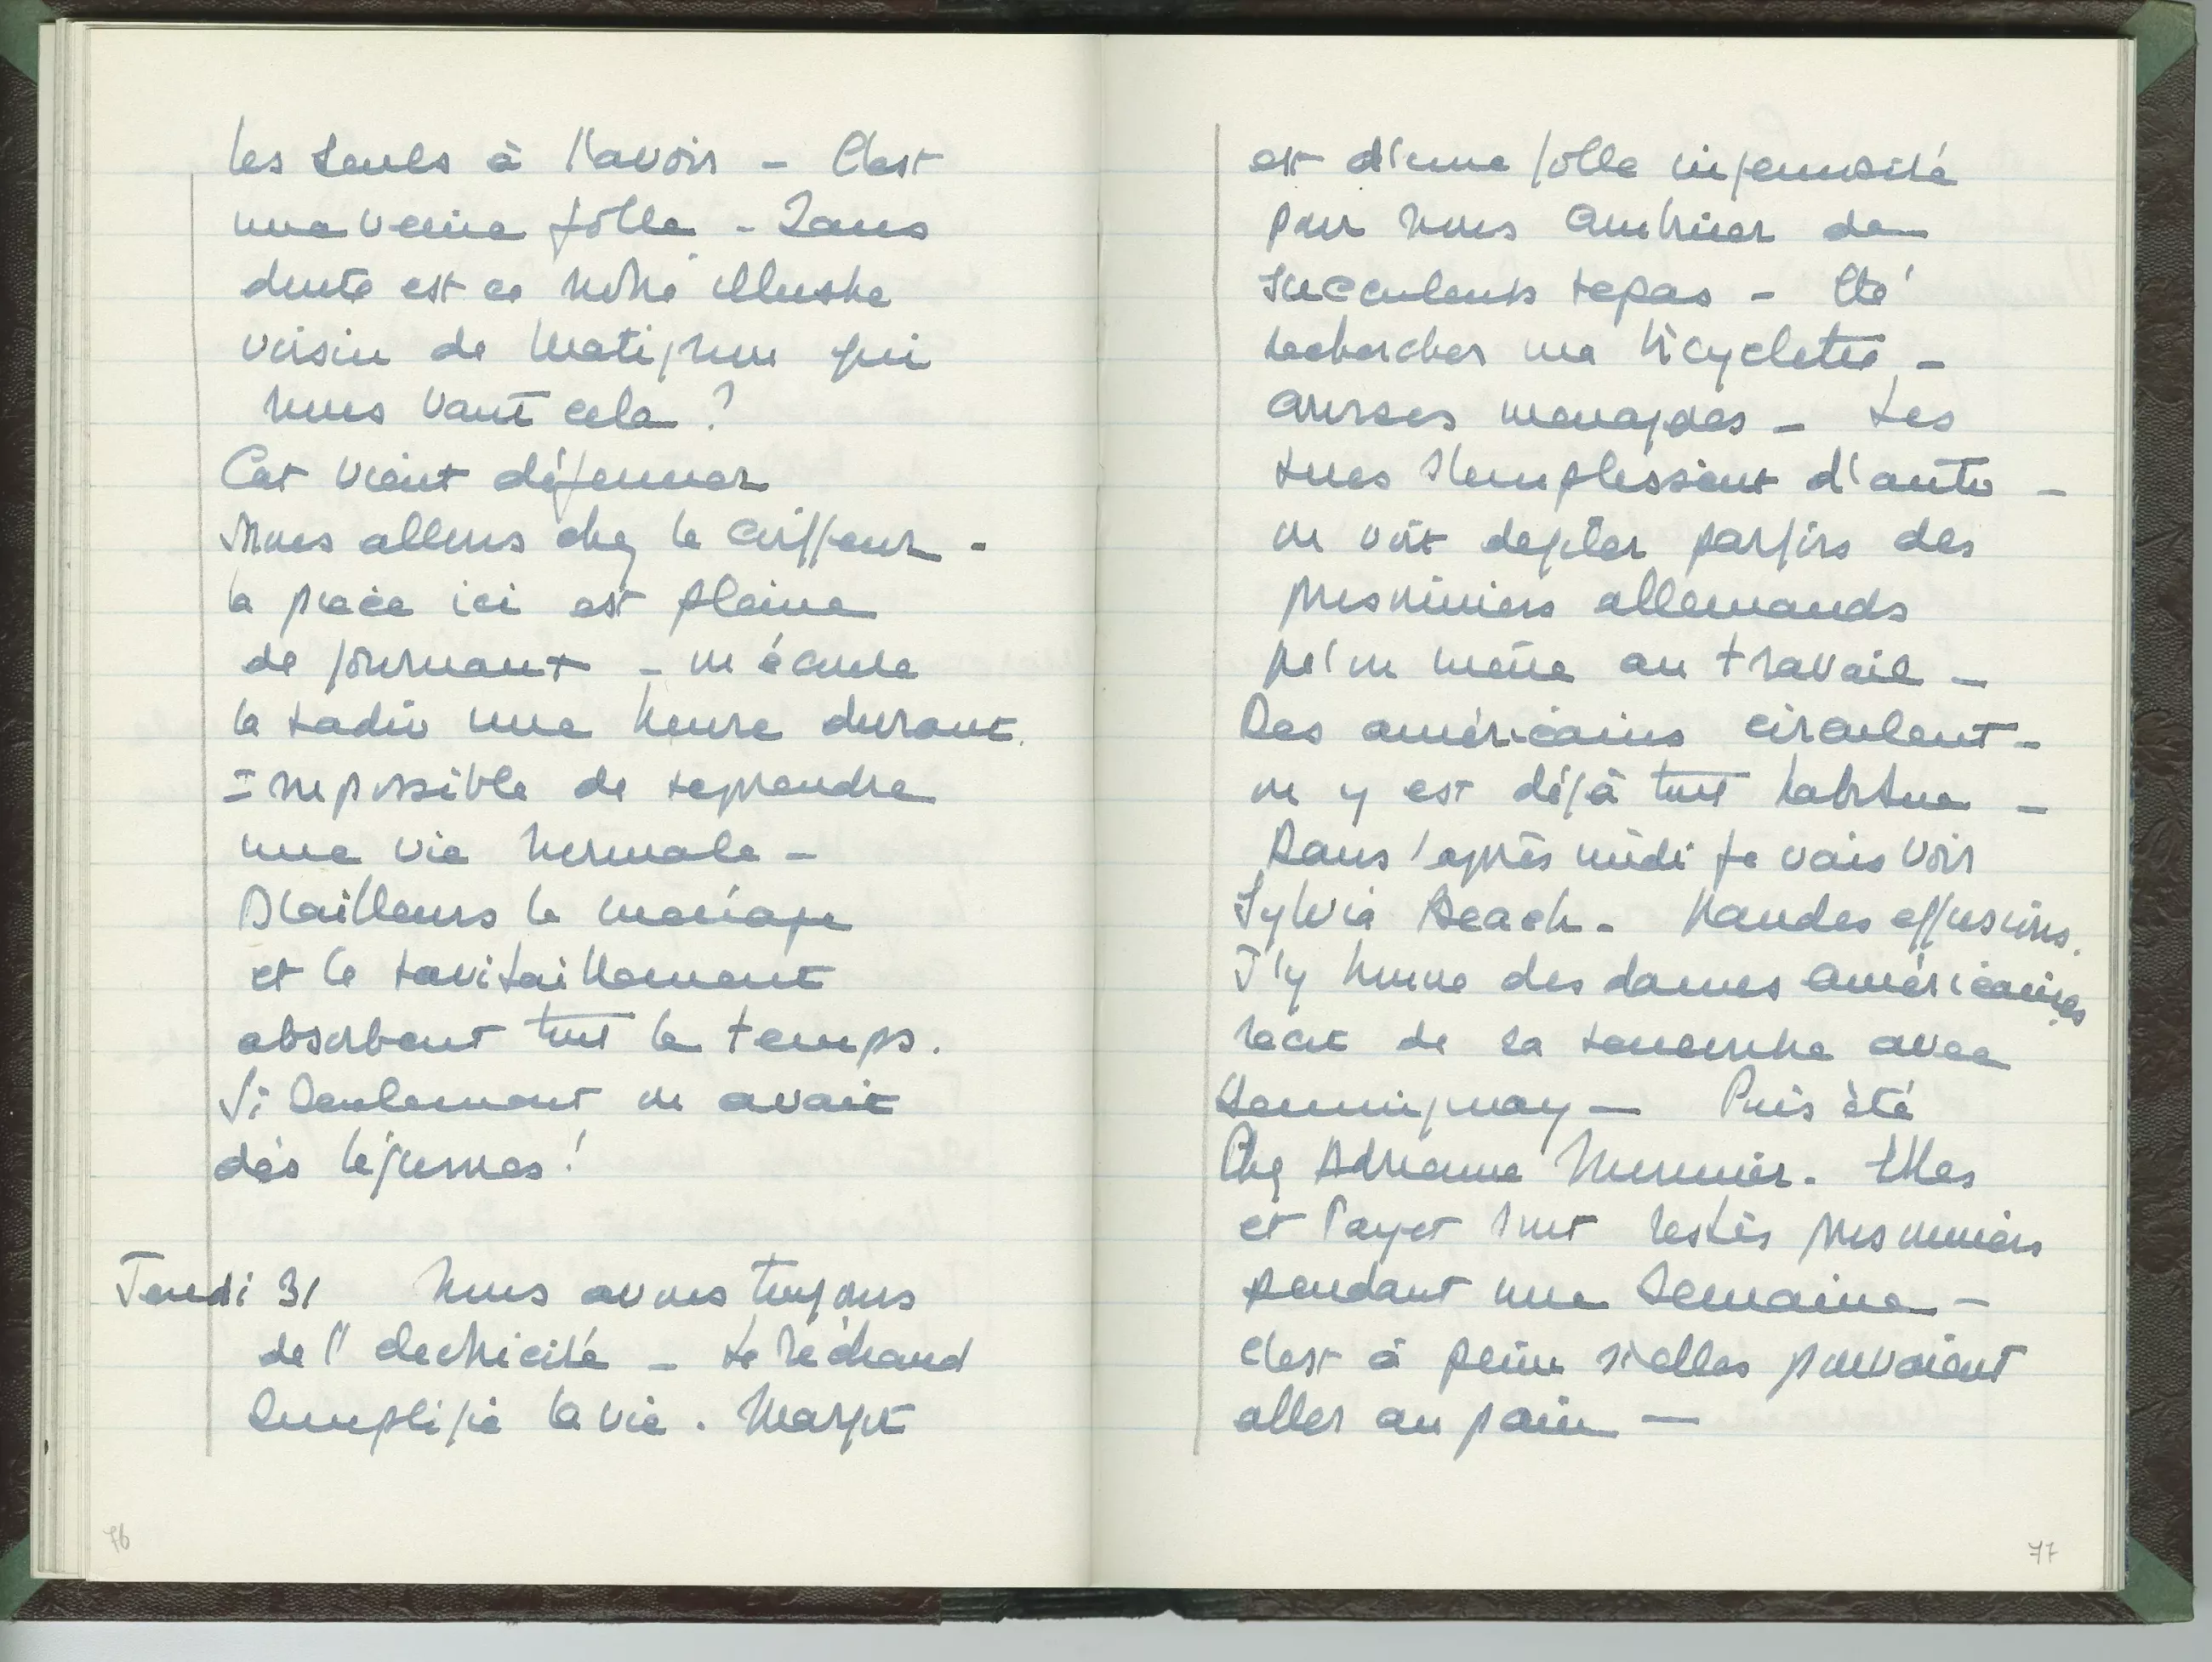 les seuls à l'avoir – C'est
une veine folle – Sans
doute est ce notre illustre
voisin de Matignon qui
nous vaut cela ?
Cat vient déjeuner
Nous allons chez le coiffeur –
la pièce ici est pleine
de journaux – on écoute
la radio une heure durant.
Impossible de reprendre
une vie normale –
D'ailleurs le ménage
et le ravitaillement
absorbent tout le temps.
Si seulement on avait
des légumes !
Jeudi 31 Nous avons toujours
de l'électricité – le réchaud
simplifie la vie. Margot
76
est d'une folle ingeniosité
pour nous combiner de
succulents repas – Eté
rechercher ma bicyclette –
courses menageres – Les
rues s'emplissent d'autos –
on voit defiler parfois des
prisonniers allemands
qu'on mène au travail –
Des américains circulent –
on y est déjà tout habitué –
Dans l'après midi je vais voir
Sylvia Beach – Grandes effusions.
J'y trouve des dames américaines
recit de sa rencontre avec
Hemingway – Puis été
Chez Adrienne Monnier. Elles
et Payet sont restés prisonniers
pendant une semaine –
C'est à peine si elles pouvaient
aller au pain –
77